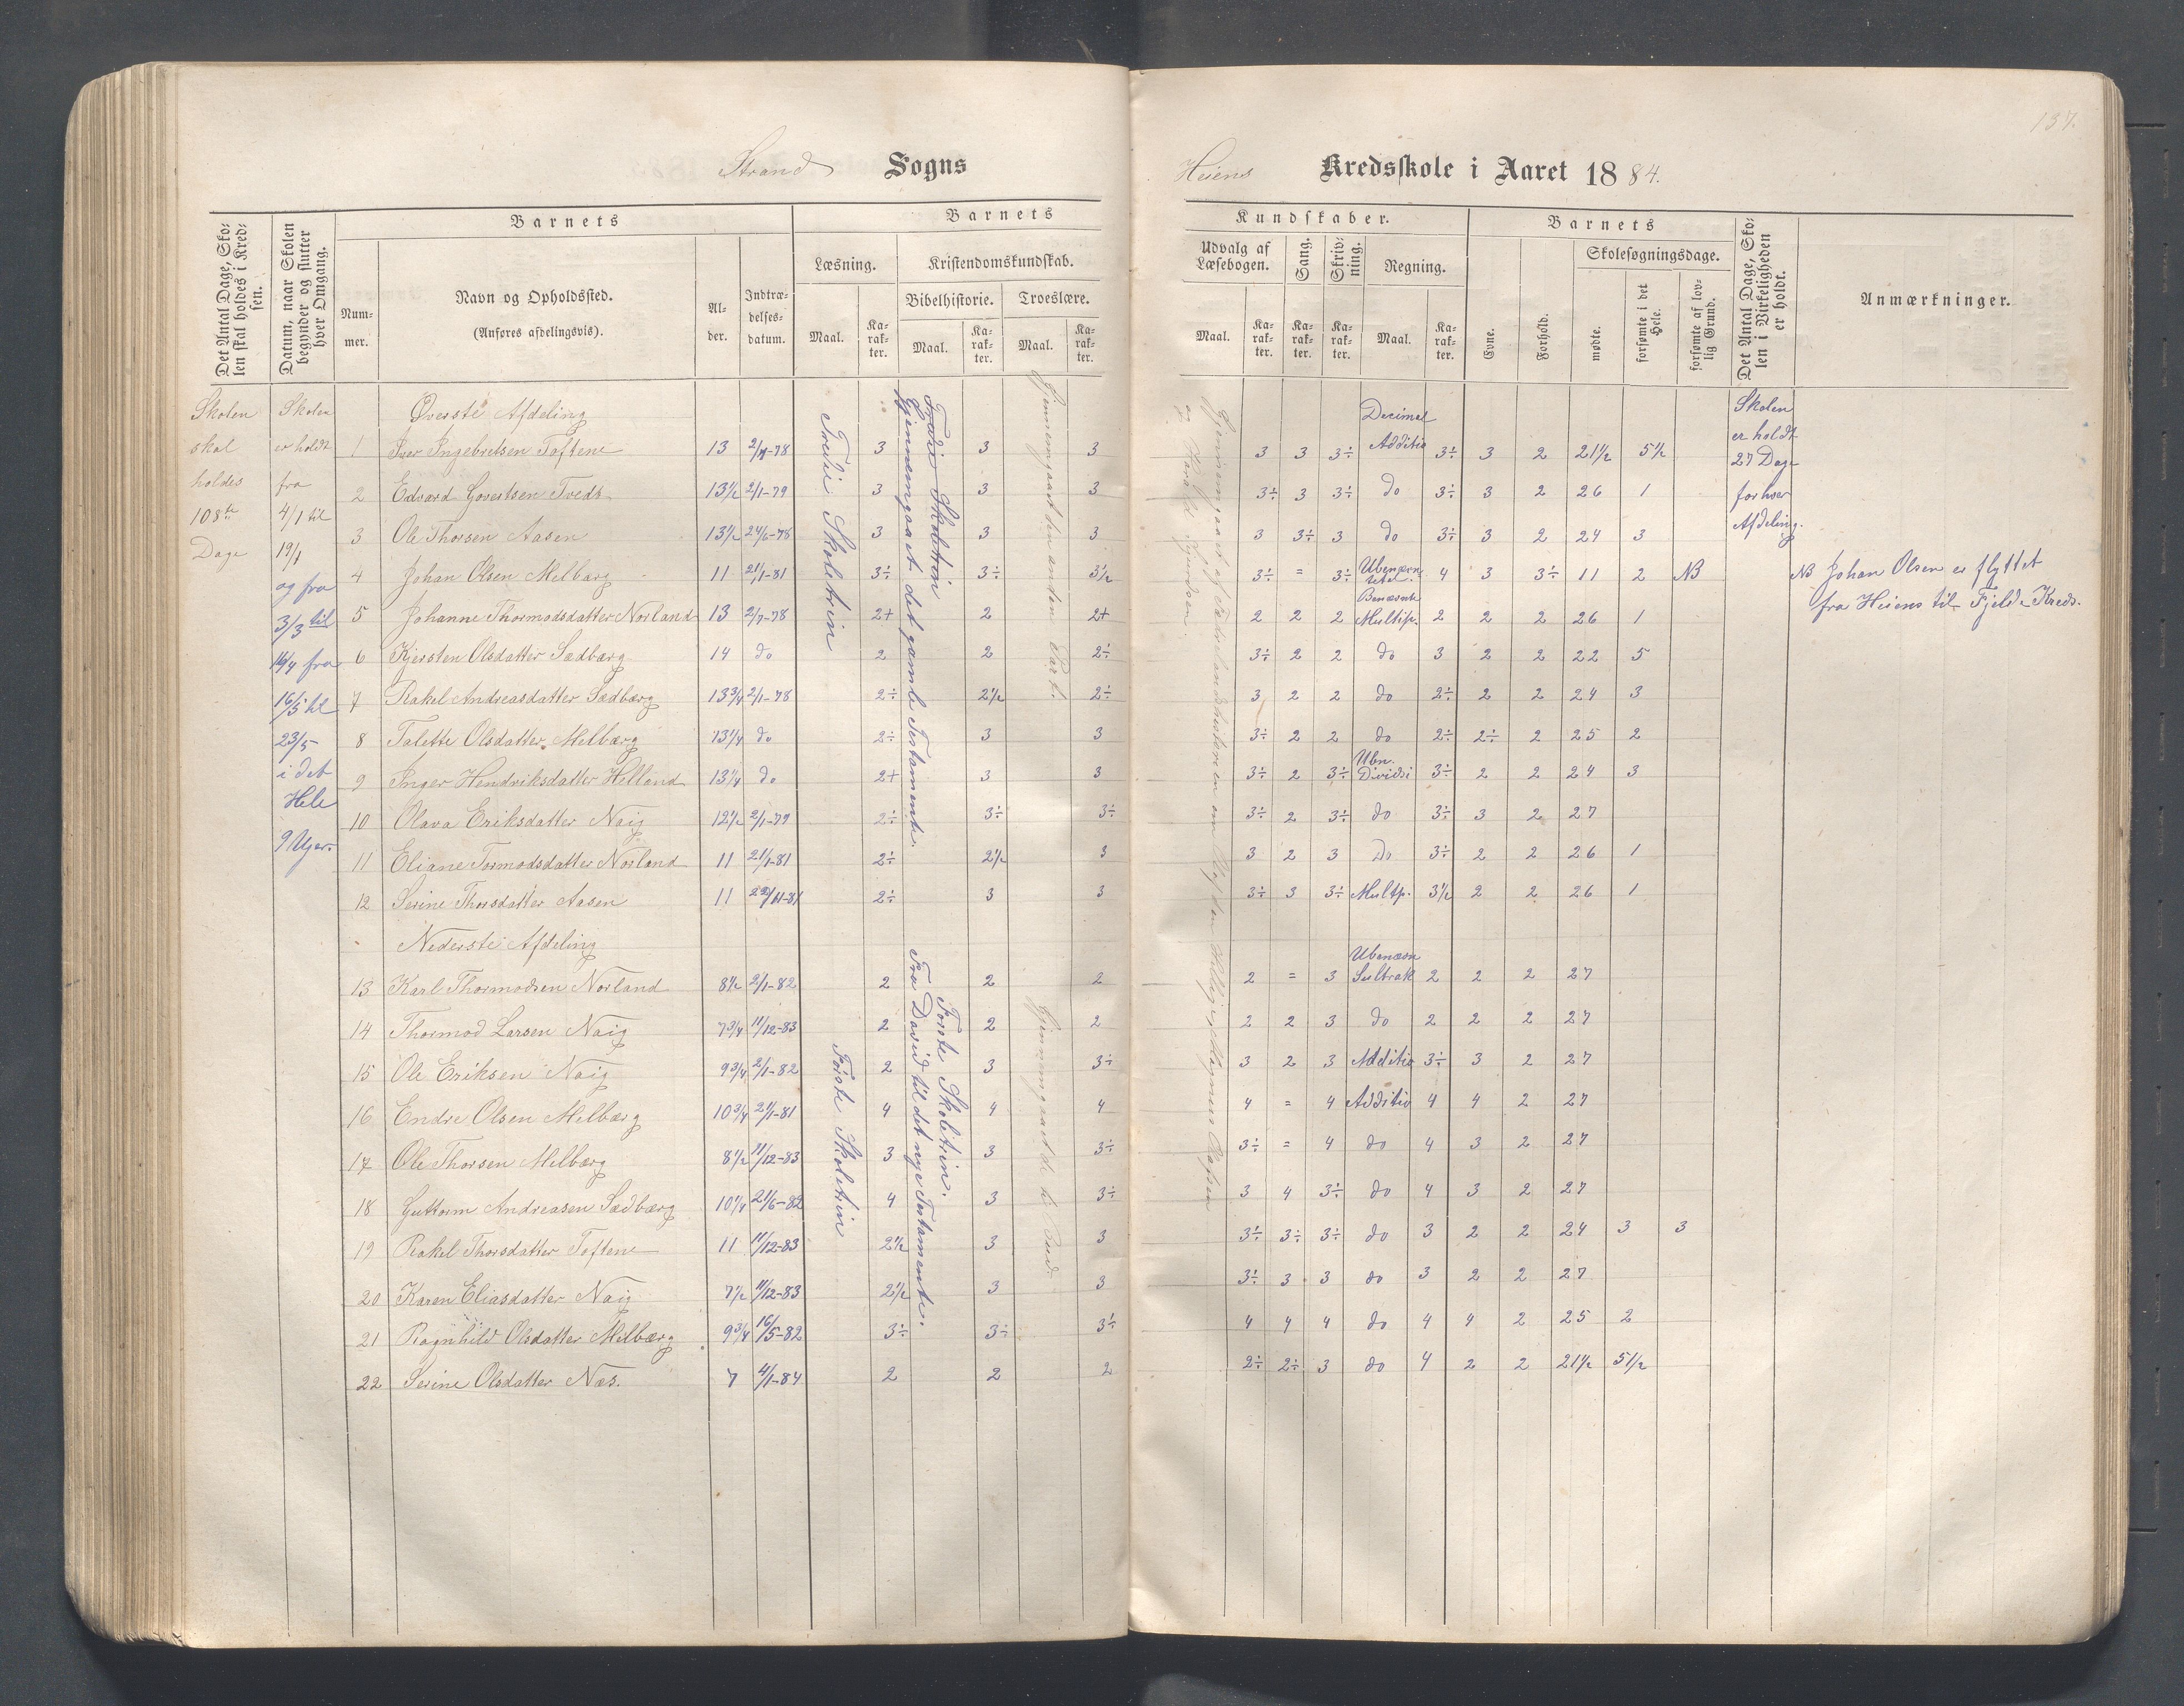 137.
Strand Sogns
Heiens Kredsskole i Aaret 1884.
Det Antal Dage, Skolen skal holdes i Kredsen.
Datum, naar Skolen begynder og slutter hver Omgang.
Barnets
Nummer.
Navn og Opholdssted.
(Anføres afdelingsvis).
Alder.
Indtrædelsesdatum.
Barnets
Læsning.
Kristendomskundskab.
Bibelhistorie. Troeslære.
Maal. Karakter. Maal. Karakter. Maal. Karakter.
Kundskaber.
Udvalg af Læsebogen. Sang. Skrivning. Regning.
Maal. Karakter. Karakter. Karakter. Maal. Karakter.
Barnets
Evne. Forhold.
Skolesøgningsdage.
mødte. forsømte i det Hele. forsømte af lovlig Grund.
Det Antal Dage, Skolen i Virkeligheden er holdt.
Anmærkninger.
Skolen
skal
holdes
108te
Dage
Skolen
er holdt
fra
4/1 til
19/1
og fra
3/3 til
16/4 fra
16/5 til
23/5
i det
Hele
9 Uger.
Øverste Afdeling
1 Iver Ingebretsen Toftene 13 2/7-78 3 3 3 3 3 3÷ Decimal Additio 3÷ 3 2 21½ 5½
2 Edvard Govertsen Tvedt 13½ 2/1-79 3 3 3 3÷ 3 3÷ do 3÷ 3 2 26 1
3 Ole Thorsen Aasen 13½ 24/6-78 3 3 3 3 3÷ 3 do 3÷ 3 2 24 3
4 Johan Olsen Melbærg 11 21/1-81 3÷ 3÷ 3½ 3÷ = 3÷ 4 3 3÷ 11 2 NB
5 Johanne Thormodsdatter Norland 13 2/7-78 2+ 2 2+ 2 2 2 Benævnte Multip. 2 2 2 26 1
6 Kjersten Olsdatter Sædbærg 14 do 2 2 2÷ 3÷ 2 2 do 3 2 2 22 5
7 Rakel Andreasdatter Sædbærg 13¾ 2/1-78 2÷ 2½ 2÷ 3 2 2 do 2÷ 2 2 24 3
8 Talette Olsdatter Melbærg 13¼ do 2÷ 3 3 3÷ 2 2 do 2÷ 2÷ 2 25 2
9 Inger Hendriksdatter Helland 13¼ do 2+ 3 3 3÷ 2 3÷ Ubn. Dividsi 3÷ 2 2 24 3
10 Olava Eriksdatter Naig 12½ 2/1-79 2÷ 3÷ 3÷ 3÷ 2 3÷ do 3÷ 3 2 27
11 Eliane Tormodsdatter Norland 11 21/1-81 2÷ 2½ 3 3 2 3 Do 3÷ 2 2 26 1
12 Serine Thorsdatter Aasen 11 22/11-81 2÷ 3 3 3÷ 3 3÷ Multp. 3½ 2 2 26 1
Nederste Afdeling
13 Karl Thormodsen Norland 8½ 2/1-82 2 2 2 2 = 3 Ubenævn Subtrak 2 2 2 27
14 Thormod Larsen Naig 7¾ 11/12-83 2 2 2 2 2 3 do 2 2 2 27
15 Ole Eriksen Naig 9¾ 2/1-82 2 3 3÷ 3 2 3 Additio 3÷ 3 2 27
16 Endre Olsen Melbærg 10¾ 21/1-81 4 4 4 4 = 4 Additio 4 4 2 27
17 Ole Thorsen Melbærg 8½ 11/12-83 3 3 3÷ 3÷ = 4 do 4 3 2 27
18 Guttorm Andreasen Sædbærg 10¼ 21/6-82 4 3 3÷ 3 4 3÷ do 4 3 2 27
19 Rakel Thorsdatter Toftene 11 11/12-83 2½ 3 3 3÷ 3÷ 3÷ do 3 2 2 24 3 3
20 Karen Eliasdatter Naig 7½ 11/12-83 2½ 3 3 3÷ 3 3 do 3 2 2 27
21 Ragnhild Olsdatter Melbærg 9¾ 16/5-82 3÷ 3÷ 3÷ 4 4 4 do 4 4 2 25 2
22 Serine Olsdatter Næs. 7 4/1-84 2 2 2 2÷ 2÷ 3 do 4 2 2 21½ 5½
Tredie Skoletrin
Tredie Skoletrin
Gjennemgaaet det gamle Testamente.
Gjennemgaaet den anden Part.
Første Skoletrin
Første Skoletrin.
Fra David til det nye Testamente.
Gjennemgaaet de ti Bud.
Gjennemgaaet af Fædrelandshistorien om Olaf den Hellige
Skolen
er holdt
27 Dage
for hver
Afdeling.
NB Johan Olsen er flyttet
fra Heiens til Fjelde Kreds.